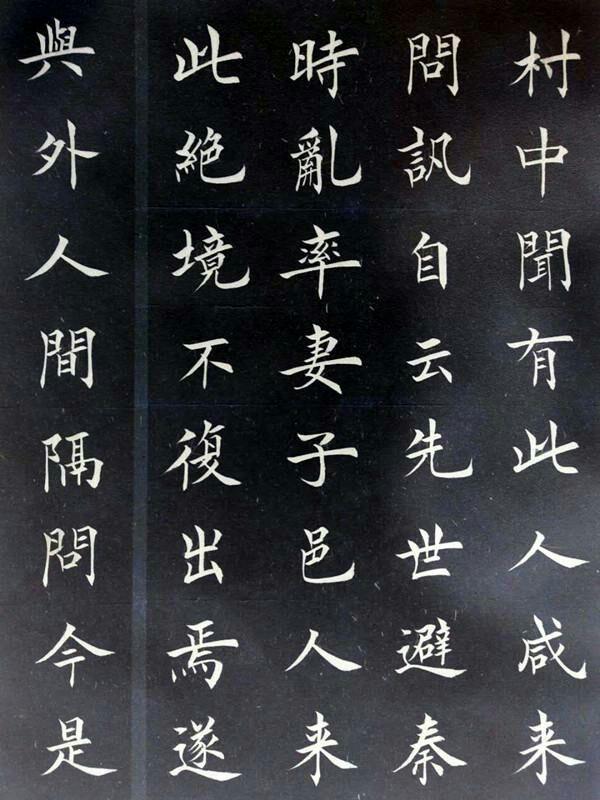 村中聞有此人咸来
問訊自云先世避秦
時亂率妻子邑人来
此絶境不復出焉遂
與外人間隔問今是